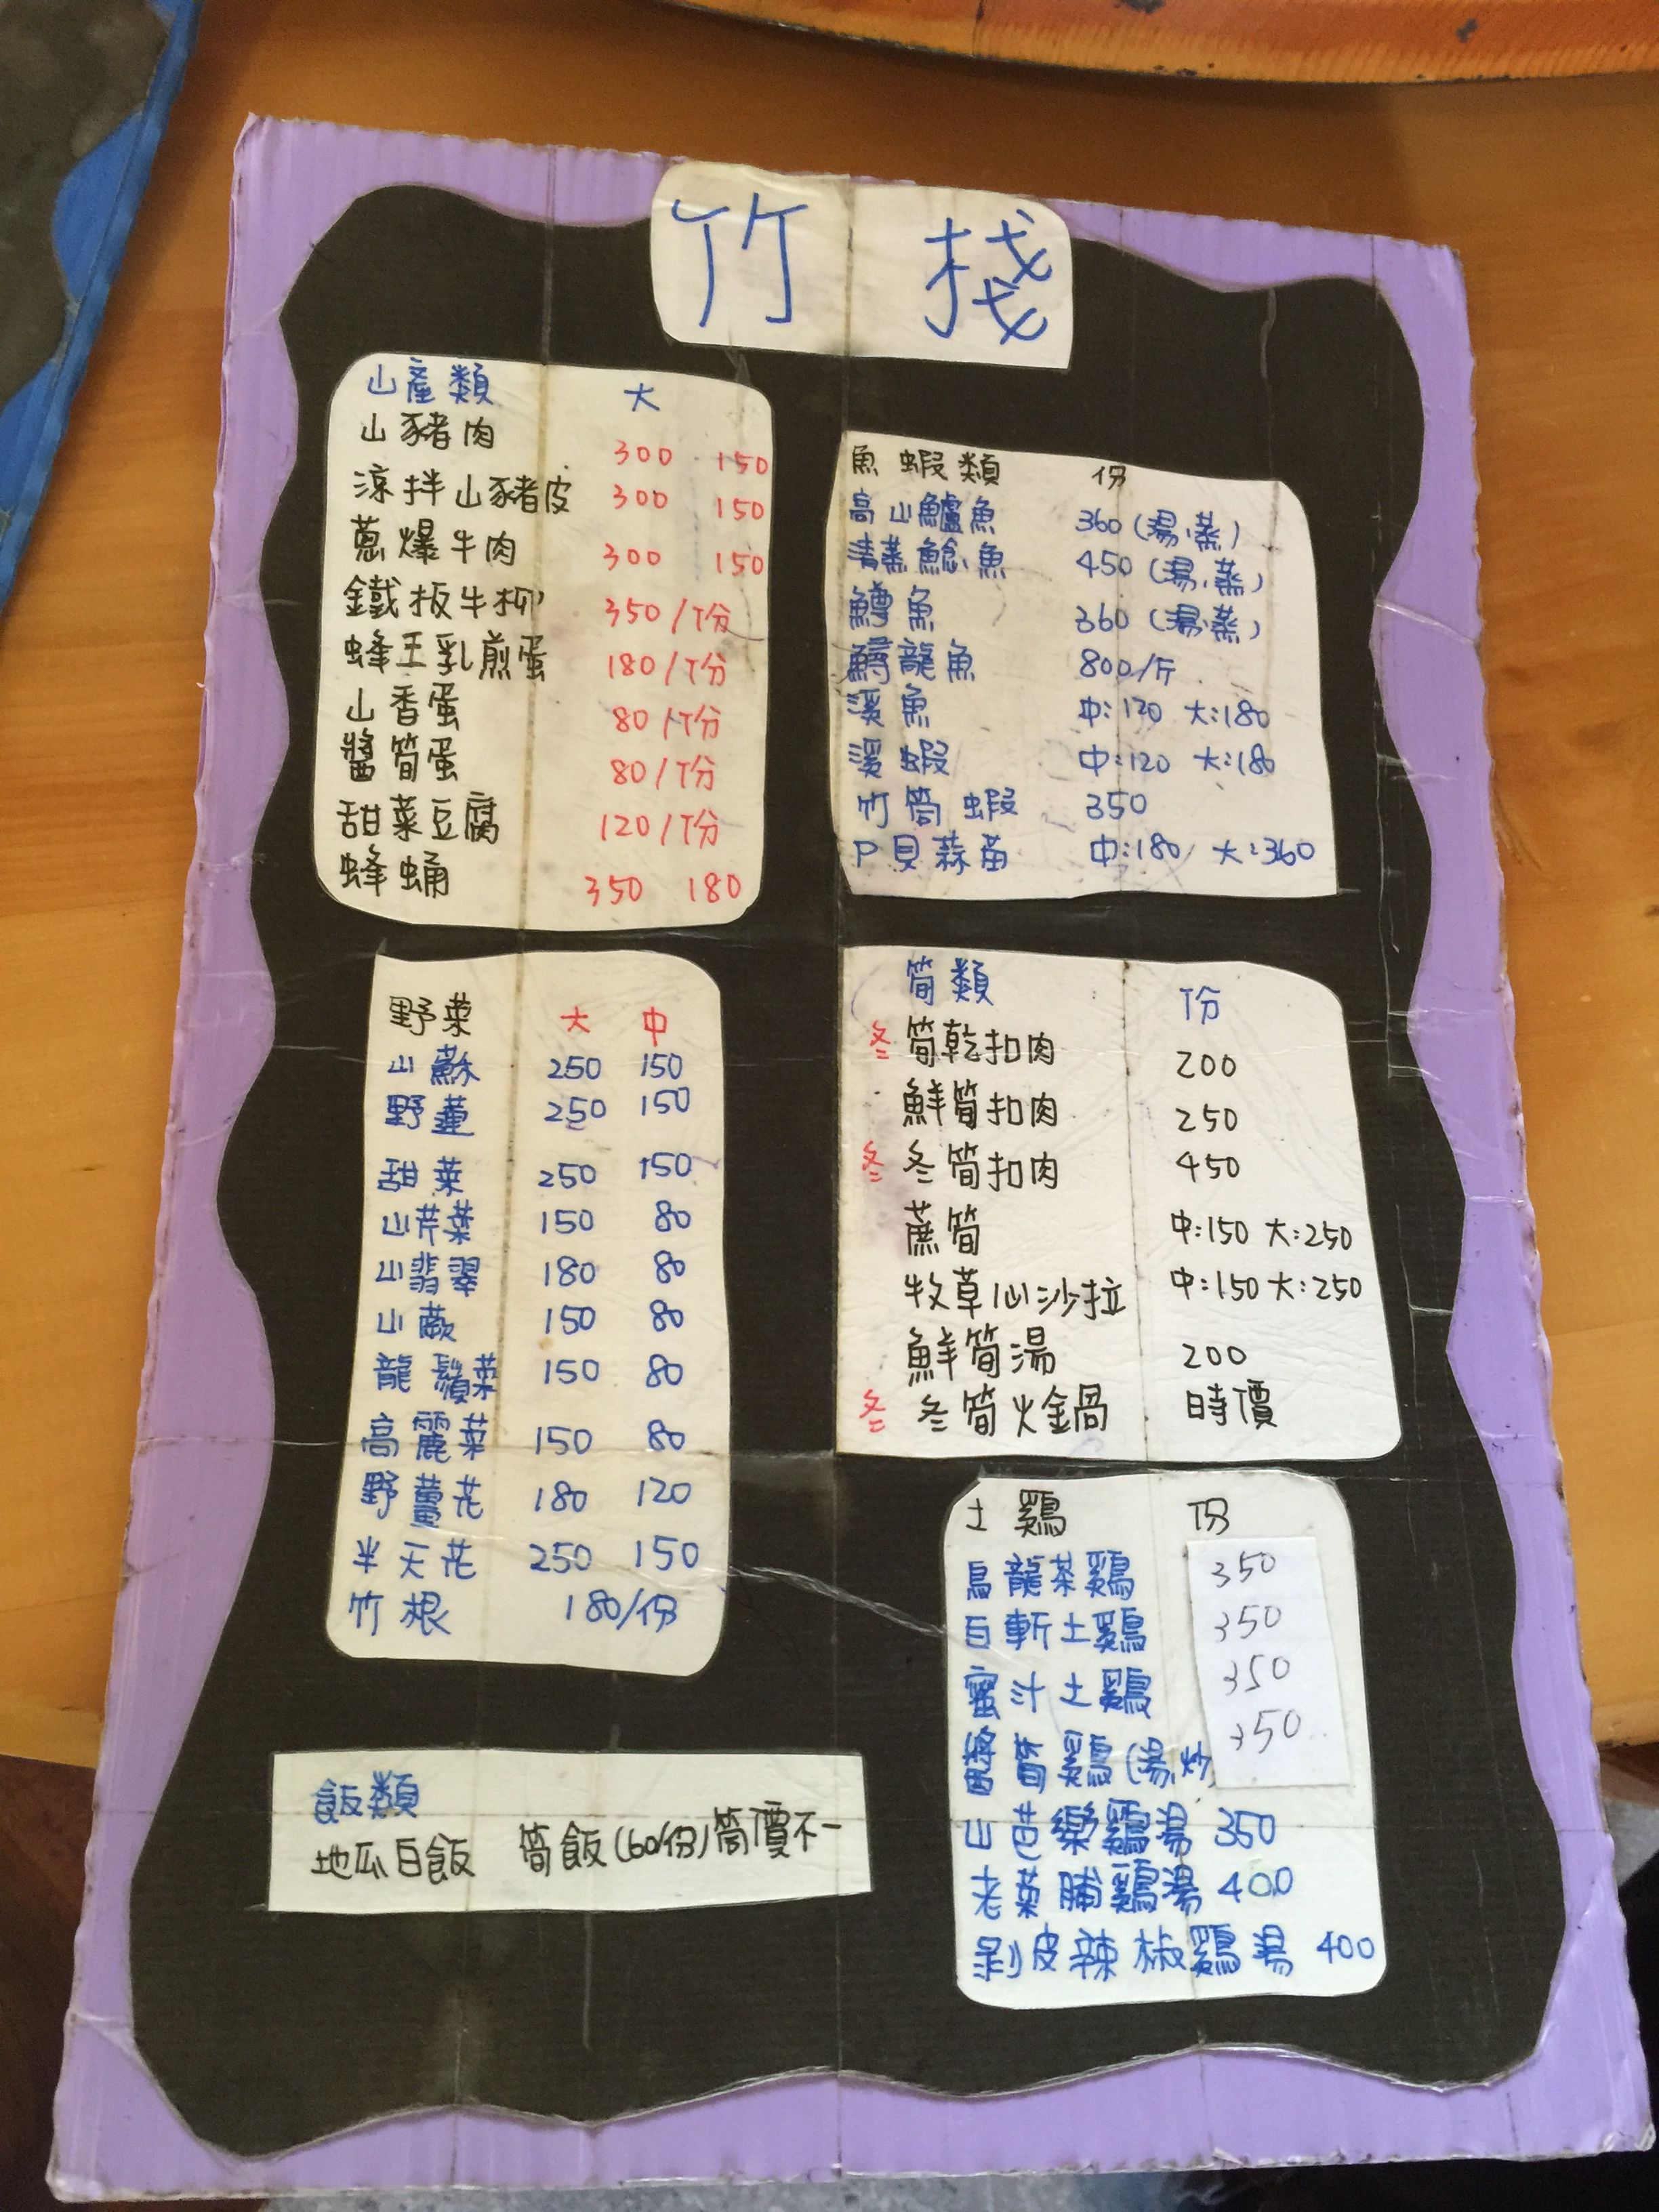 竹 棧
山產類 大
山豬肉 300 150
涼拌山豬皮 300 150
蔥爆牛肉 300 150
鐵板牛柳 350/份
蜂王乳煎蛋 180/份
山香蛋 80/份
醬筍蛋 80/份
甜菜豆腐 120/份
蜂蛹 350 180
魚蝦類 份
高山鱸魚 360(湯、蒸)
清蒸鯰魚 450(湯、蒸)
鱒魚 360(湯、蒸)
鱘龍魚 800/斤
溪魚 中:120 大:180
溪蝦 中:120 大:180
竹筒蝦 350
P貝蒜苗 中:180 大:360
野菜 大 中
山蘇 250 150
野蓮 250 150
甜菜 250 150
山芹菜 150 80
山翡翠 180 80
山蕨 150 80
龍鬚菜 150 80
高麗菜 150 80
野薑花 180 120
半天花 250 150
竹根 180/份
筍類 份
冬 筍乾扣肉 200
鮮筍扣肉 250
冬 冬筍扣肉 450
蔗筍 中:150 大:250
牧草心沙拉 中:150 大:250
鮮筍湯 200
冬 冬筍火鍋 時價
土鷄 份
烏龍茶鷄 350
白斬土鷄 350
蜜汁土鷄 350
醬筍鷄(湯、炒 350
山芭樂鷄湯 350
老菜脯鷄湯 400
剝皮辣椒鷄湯 400
飯類
地瓜白飯 筒飯(60/份)筒價不一